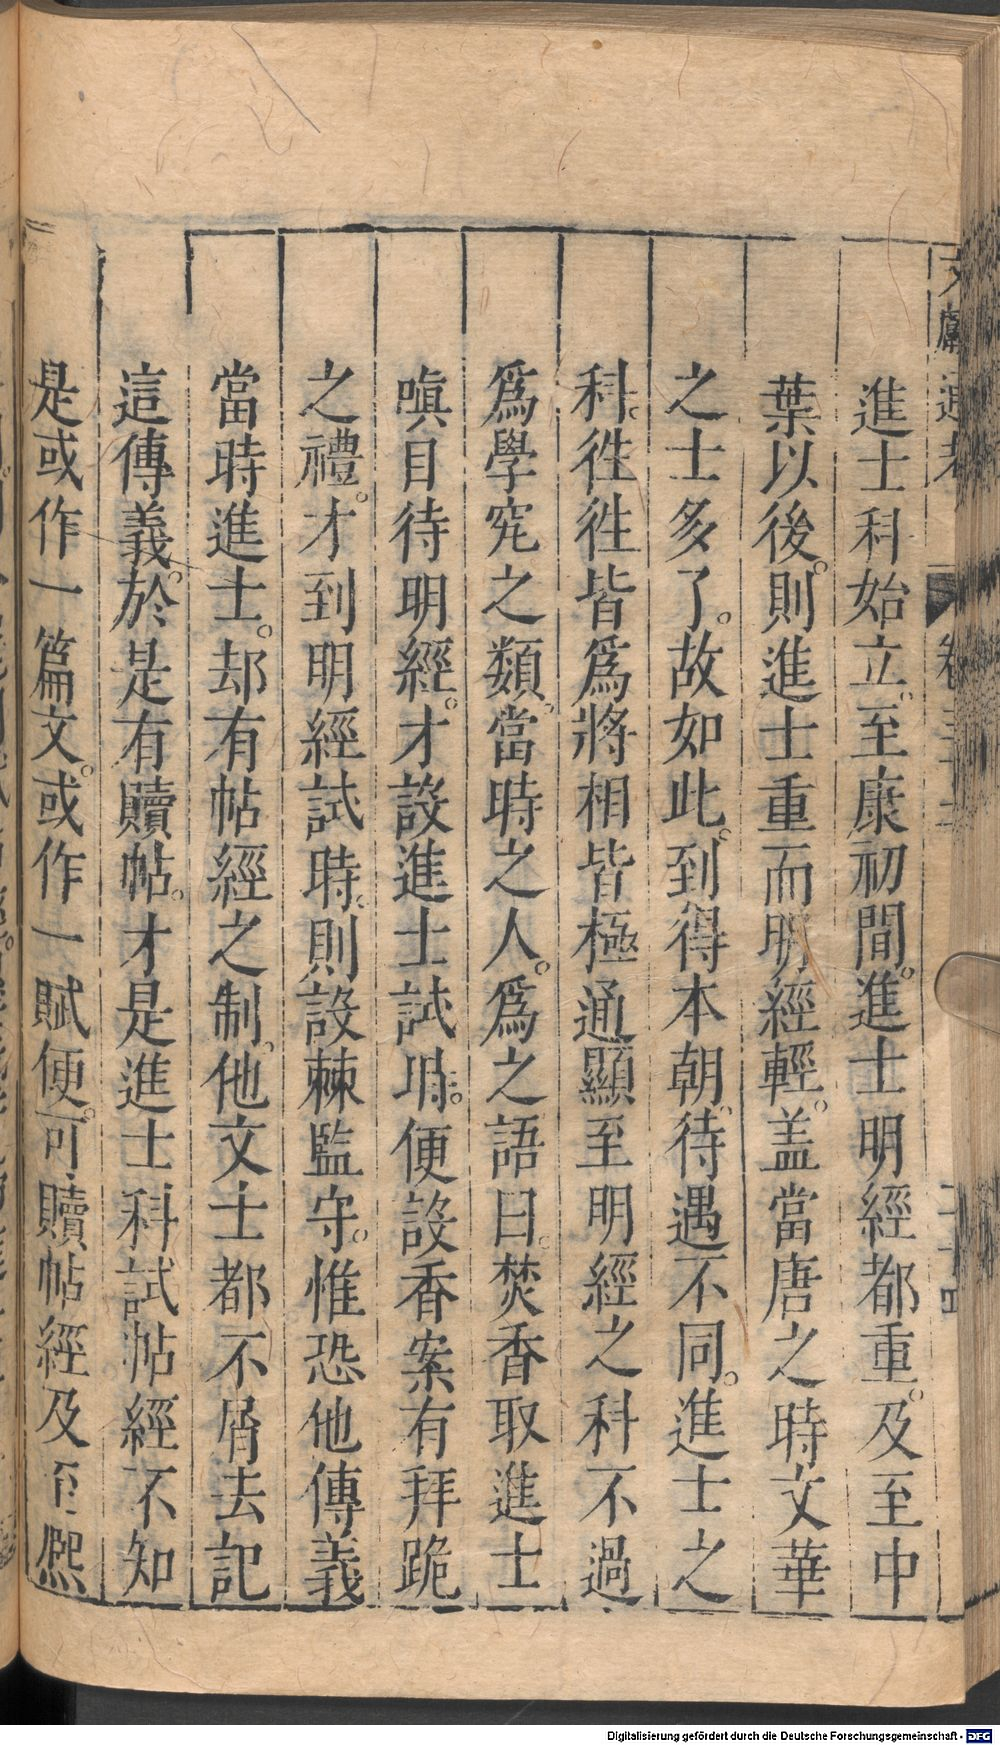 文獻通考 卷三十二 二十四
進士科始立。至康初間。進士明經都重。及至中
葉以後。則進士重而明經輕。盖當唐之時文華
之士多了。故如此。到得本朝。待遇不同。進士之
科。徃徃皆爲將相皆極通顯至明經之科不過
爲學究之類。當時之人。爲之語曰。焚香取進士
嗔目待明經。才設進士試時。便設香案有拜跪
之禮。才到明經試時。則設棘監守。惟恐他傳義
當時進士。却有帖經之制。他文士都不屑去記
這傳義。於是有贖帖。才是進士科試帖經不知
是或作一篇文。或作一賦便。可贖帖經及至熙
Digitalisierung gefördert durch die Deutsche Forschungsgemeinschaft - DFG